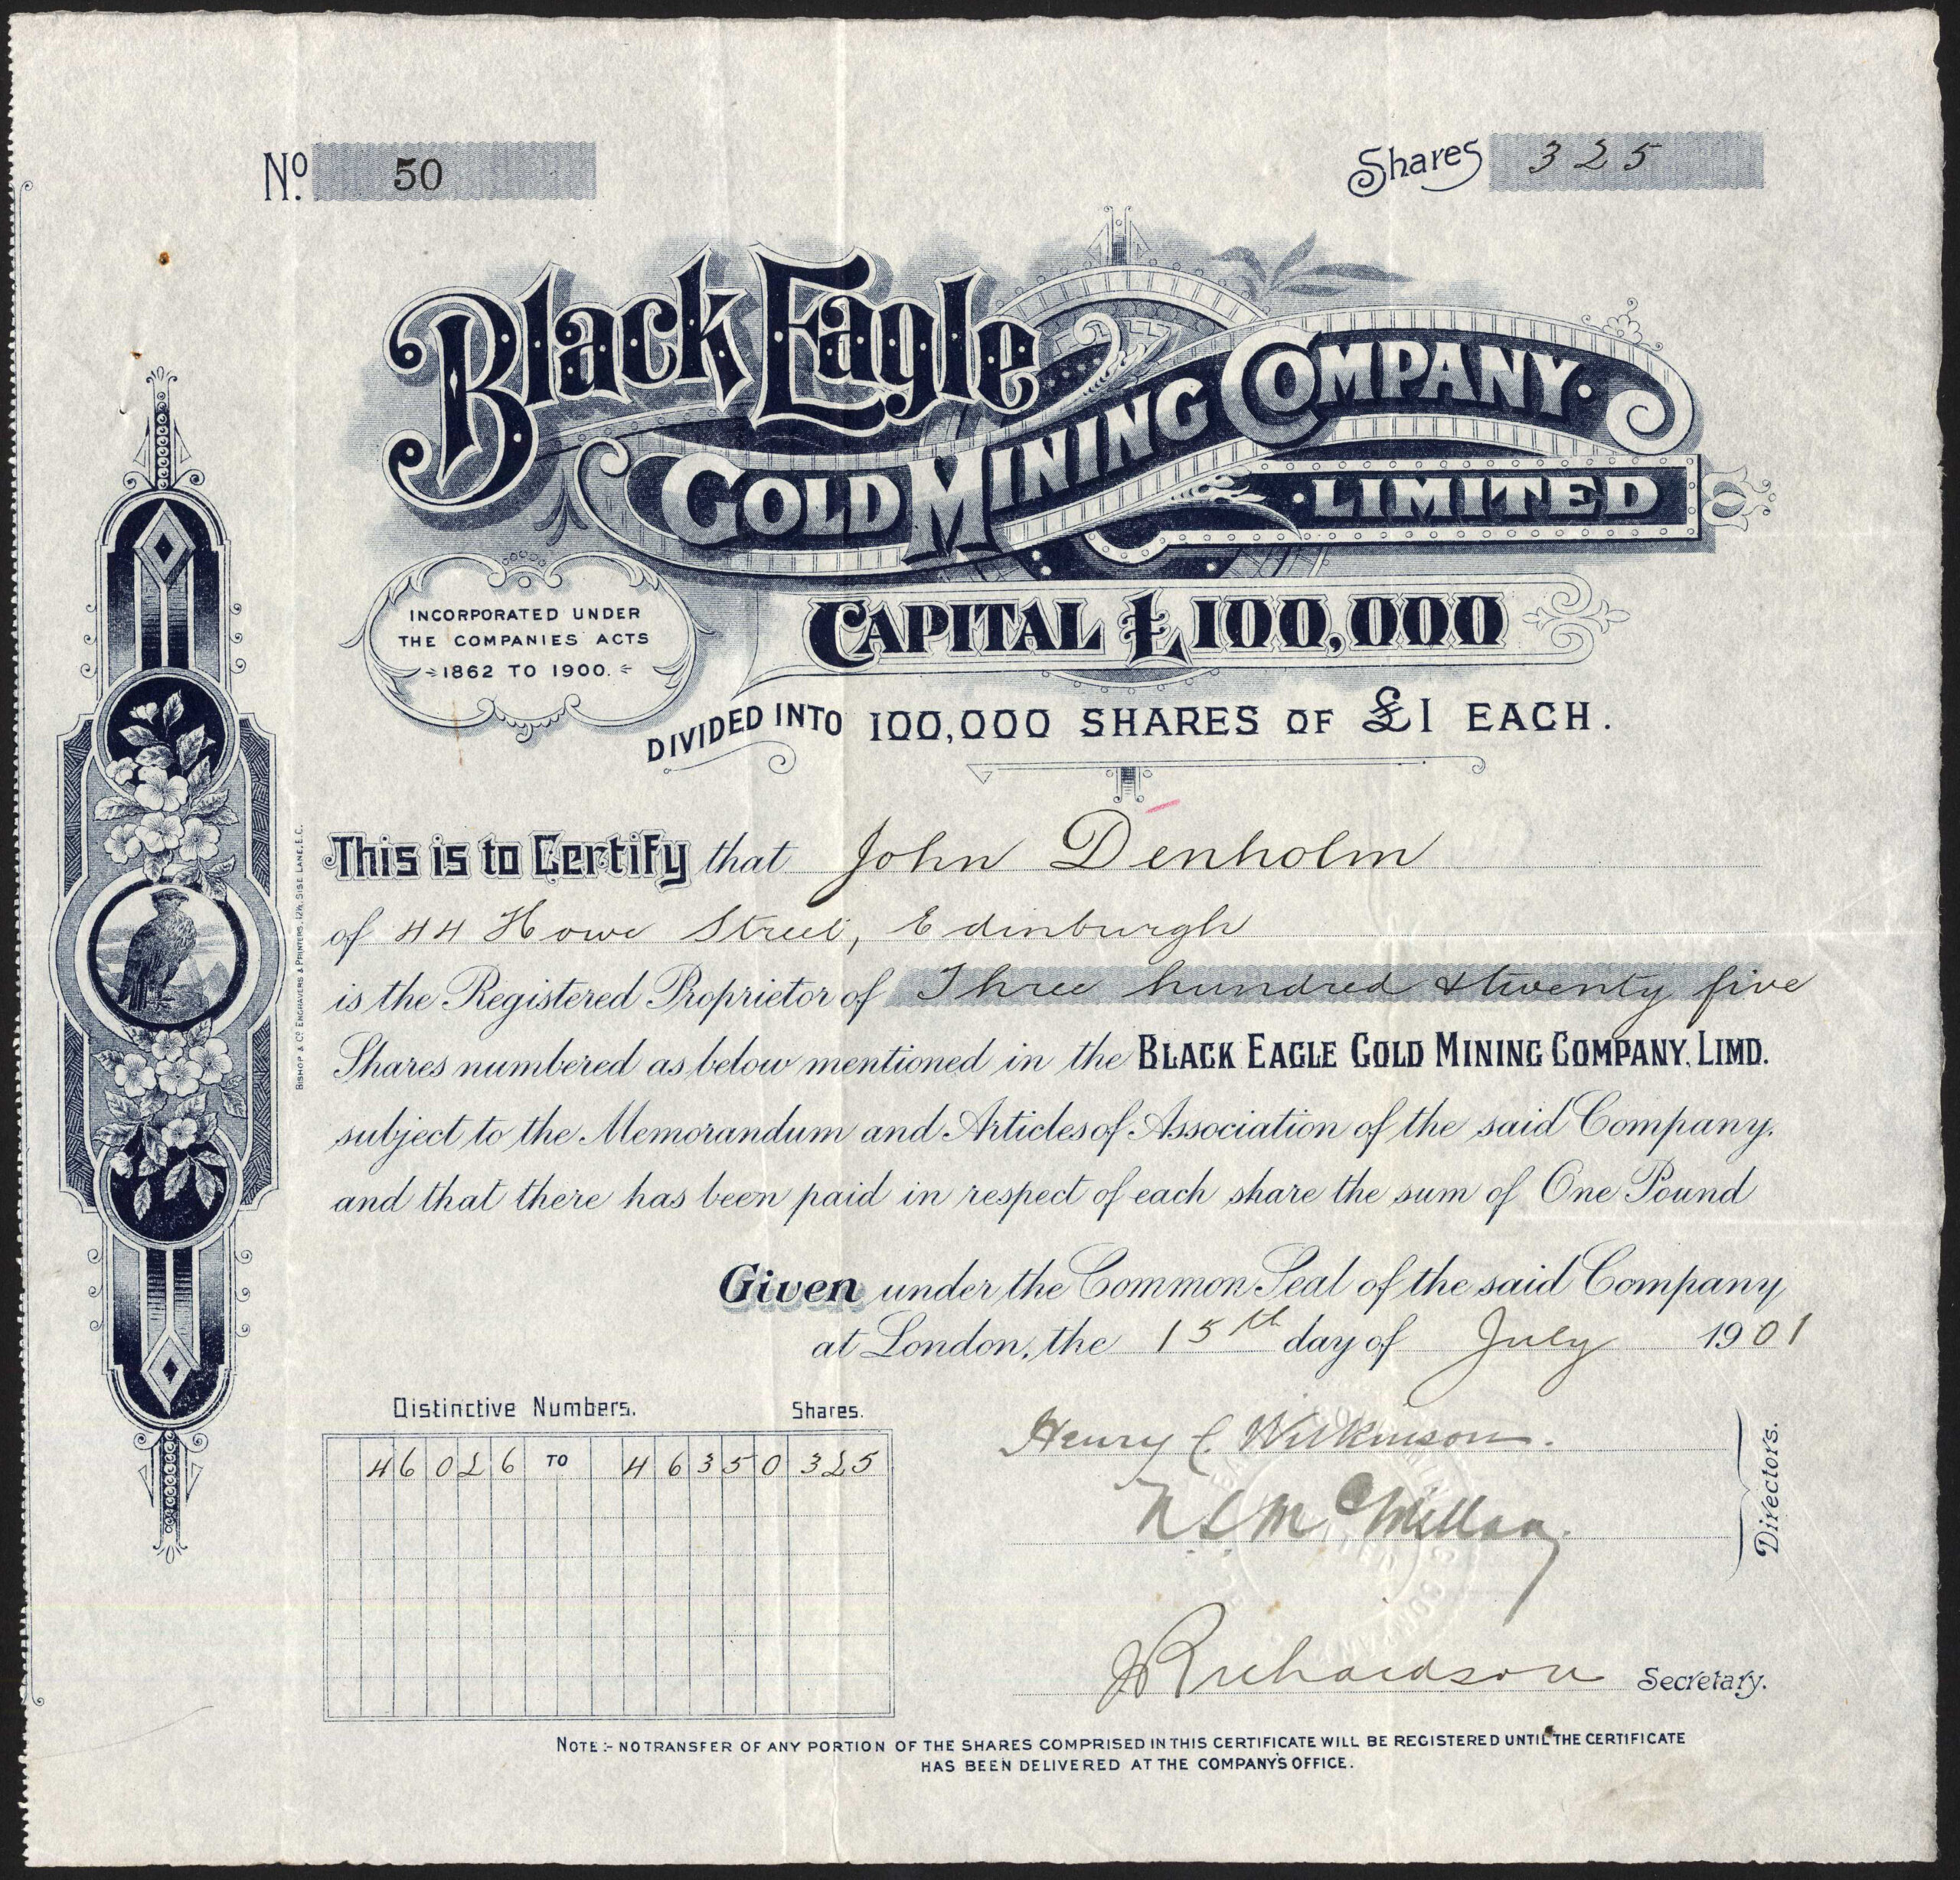 No. 50
Shares 325
Black Eagle
GOLD MINING COMPANY.
LIMITED
INCORPORATED UNDER
THE COMPANIES ACTS
1862 TO 1900.
CAPITAL £100,000
DIVIDED INTO 100,000 SHARES OF £1 EACH.
This is to Certify that John Denholm
of 44 Howe Street, Edinburgh
is the Registered Proprietor of Three hundred & twenty five
Shares numbered as below mentioned in the BLACK EAGLE GOLD MINING COMPANY, LIMD.
subject to the Memorandum and Articles of Association of the said Company,
and that there has been paid in respect of each share the sum of One Pound
Given under the Common Seal of the said Company
at London, the 15th day of July 1901
Distinctive Numbers. Shares.
46026 TO 46350 325
Henry C. Wilkinson.
N. S. McMillan.
Directors.
J Richardson Secretary.
NOTE:- NO TRANSFER OF ANY PORTION OF THE SHARES COMPRISED IN THIS CERTIFICATE WILL BE REGISTERED UNTIL THE CERTIFICATE
HAS BEEN DELIVERED AT THE COMPANY'S OFFICE.
BISHOP & CO ENGRAVERS & PRINTERS, 12½, SISE LANE, E.C.